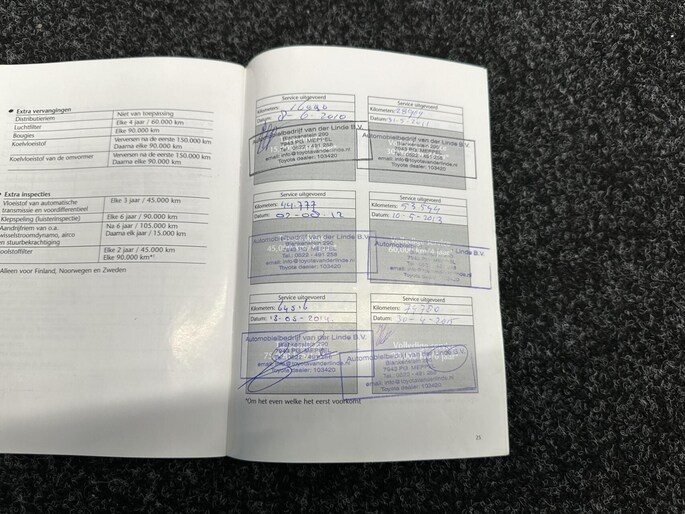 Extra vervangingen
Distributieriem Niet van toepassing
Luchtfilter Elke 4 jaar / 60.000 km
Bougies Elke 90.000 km
Koelvloeistof Verversen na de eerste 150.000 km
Daarna elke 90.000 km
Koelvloeistof van de omvormer Verversen na de eerste 150.000 km
Daarna elke 90.000 km
Extra inspecties
Vloeistof van automatische Elke 3 jaar / 45.000 km
transmissie en voordifferentieel
Klepspeling (luisterinspectie) Elke 6 jaar / 90.000 km
Aandrijfriem van o.a. Na 6 jaar / 105.000 km
wisselstroomdynamo, airco Daarna elk jaar / 15.000 km
en stuurbekrachtiging
Elke 2 jaar / 45.000 km
Elke 90.000 km*¹
Alleen voor Finland, Noorwegen en Zweden
Service uitgevoerd
Kilometers:
Datum: 8-6-2010
Automobielbedrijf van der Linde B.V.
Blankenstein 290
7943 PG MEPPEL
Tel.: 0522 - 491 258
email: info@toyotavanderlinde.nl
Toyota dealer: 103420
Service uitgevoerd
Kilometers:
Datum:
Automobielbedrijf van der Linde B.V.
Blankenstein 290
7943 PG MEPPEL
Tel.: 0522 - 491 258
email: info@toyotavanderlinde.nl
Toyota dealer: 103420
Service uitgevoerd
Kilometers: 44.777
Datum:
Automobielbedrijf van der Linde B.V.
Blankenstein 290
7943 PG MEPPEL
Tel.: 0522 - 491 258
email: info@toyotavanderlinde.nl
Toyota dealer: 103420
Service uitgevoerd
Kilometers: 53.544
Datum: 10-5-2013
Automobielbedrijf van der Linde B.V.
Blankenstein 290
7943 PG MEPPEL
Tel.: 0522 - 491 258
email: info@toyotavanderlinde.nl
Toyota dealer: 103420
Service uitgevoerd
Kilometers:
Datum:
Automobielbedrijf van der Linde B.V.
Blankenstein 290
7943 PG MEPPEL
Tel.: 0522 - 491 258
email: info@toyotavanderlinde.nl
Toyota dealer: 103420
Service uitgevoerd
Kilometers: 74700
Datum: 30-4-2015
Volledige
Automobielbedrijf van der Linde B.V.
Blankenstein 290
7943 PG MEPPEL
Tel.: 0522 - 491 258
email: info@toyotavanderlinde.nl
Toyota dealer: 103420
*Om het even welke het eerst voorkomt
25